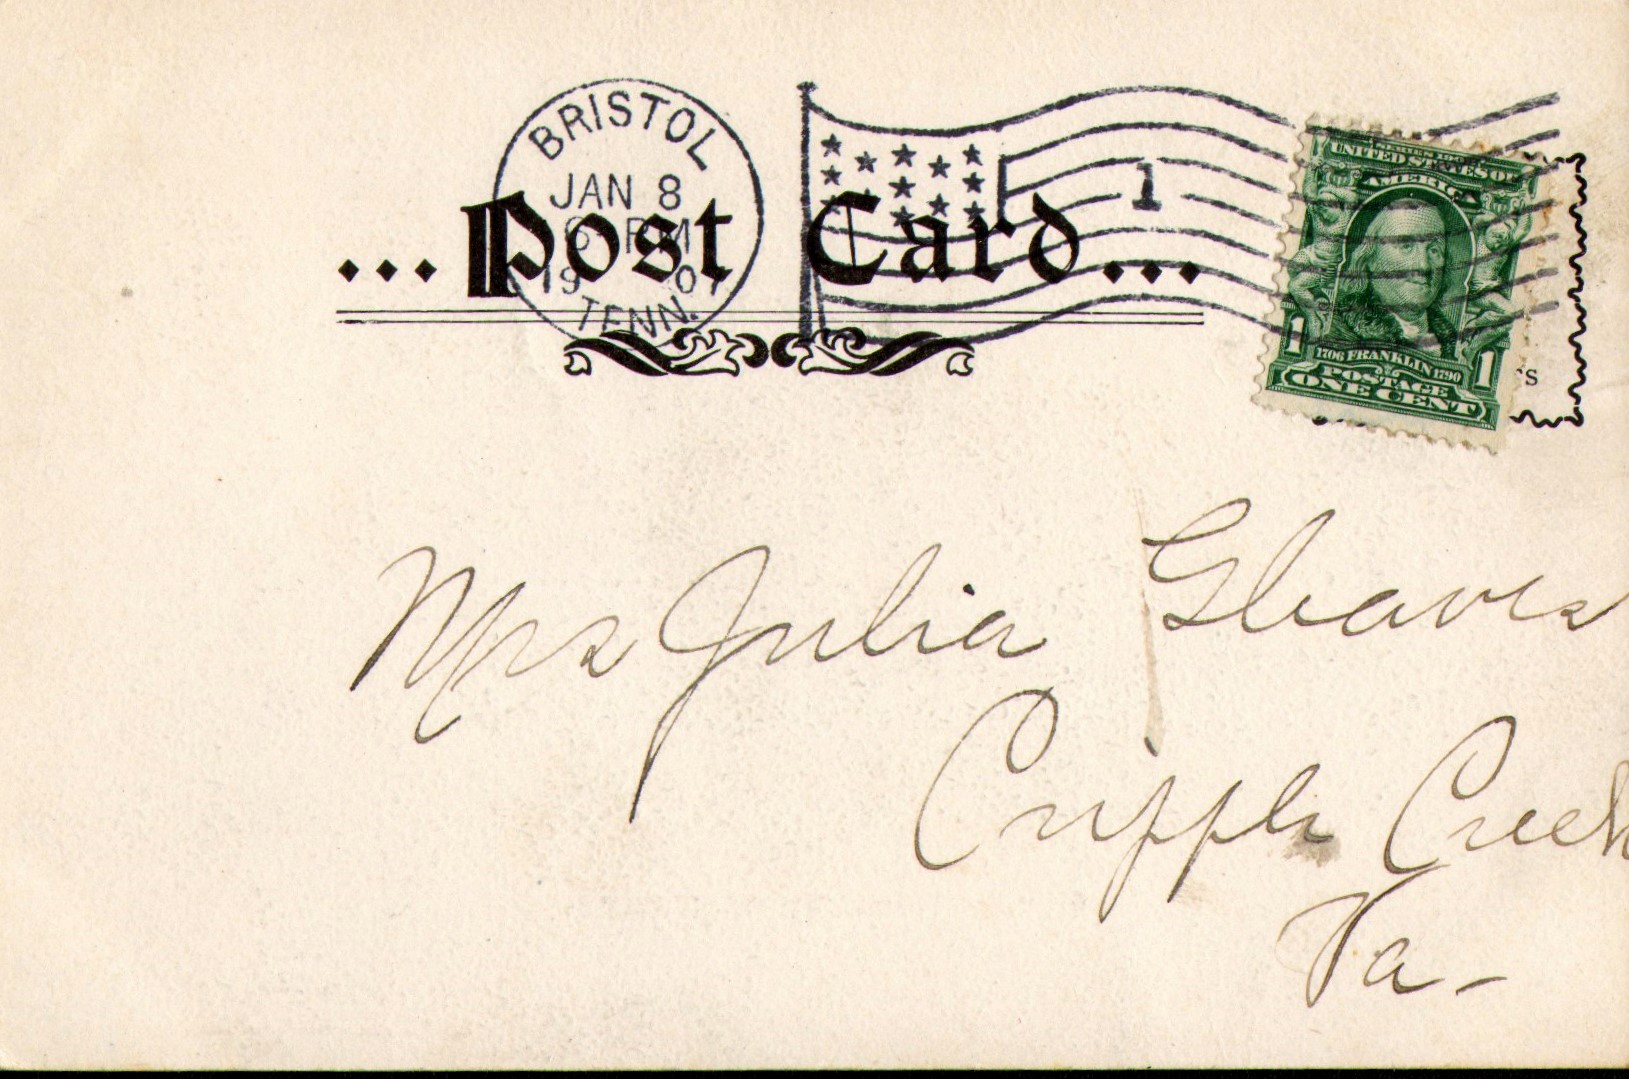 BRISTOL
JAN 8
PM
1907
TENN.
1
...Post Card...
SERIES 1902
UNITED STATES OF
AMERICA
1706 FRANKLIN 1790
1 POSTAGE 1
ONE CENT
Mrs Julia Gleaves
Cripple Creek
Va-